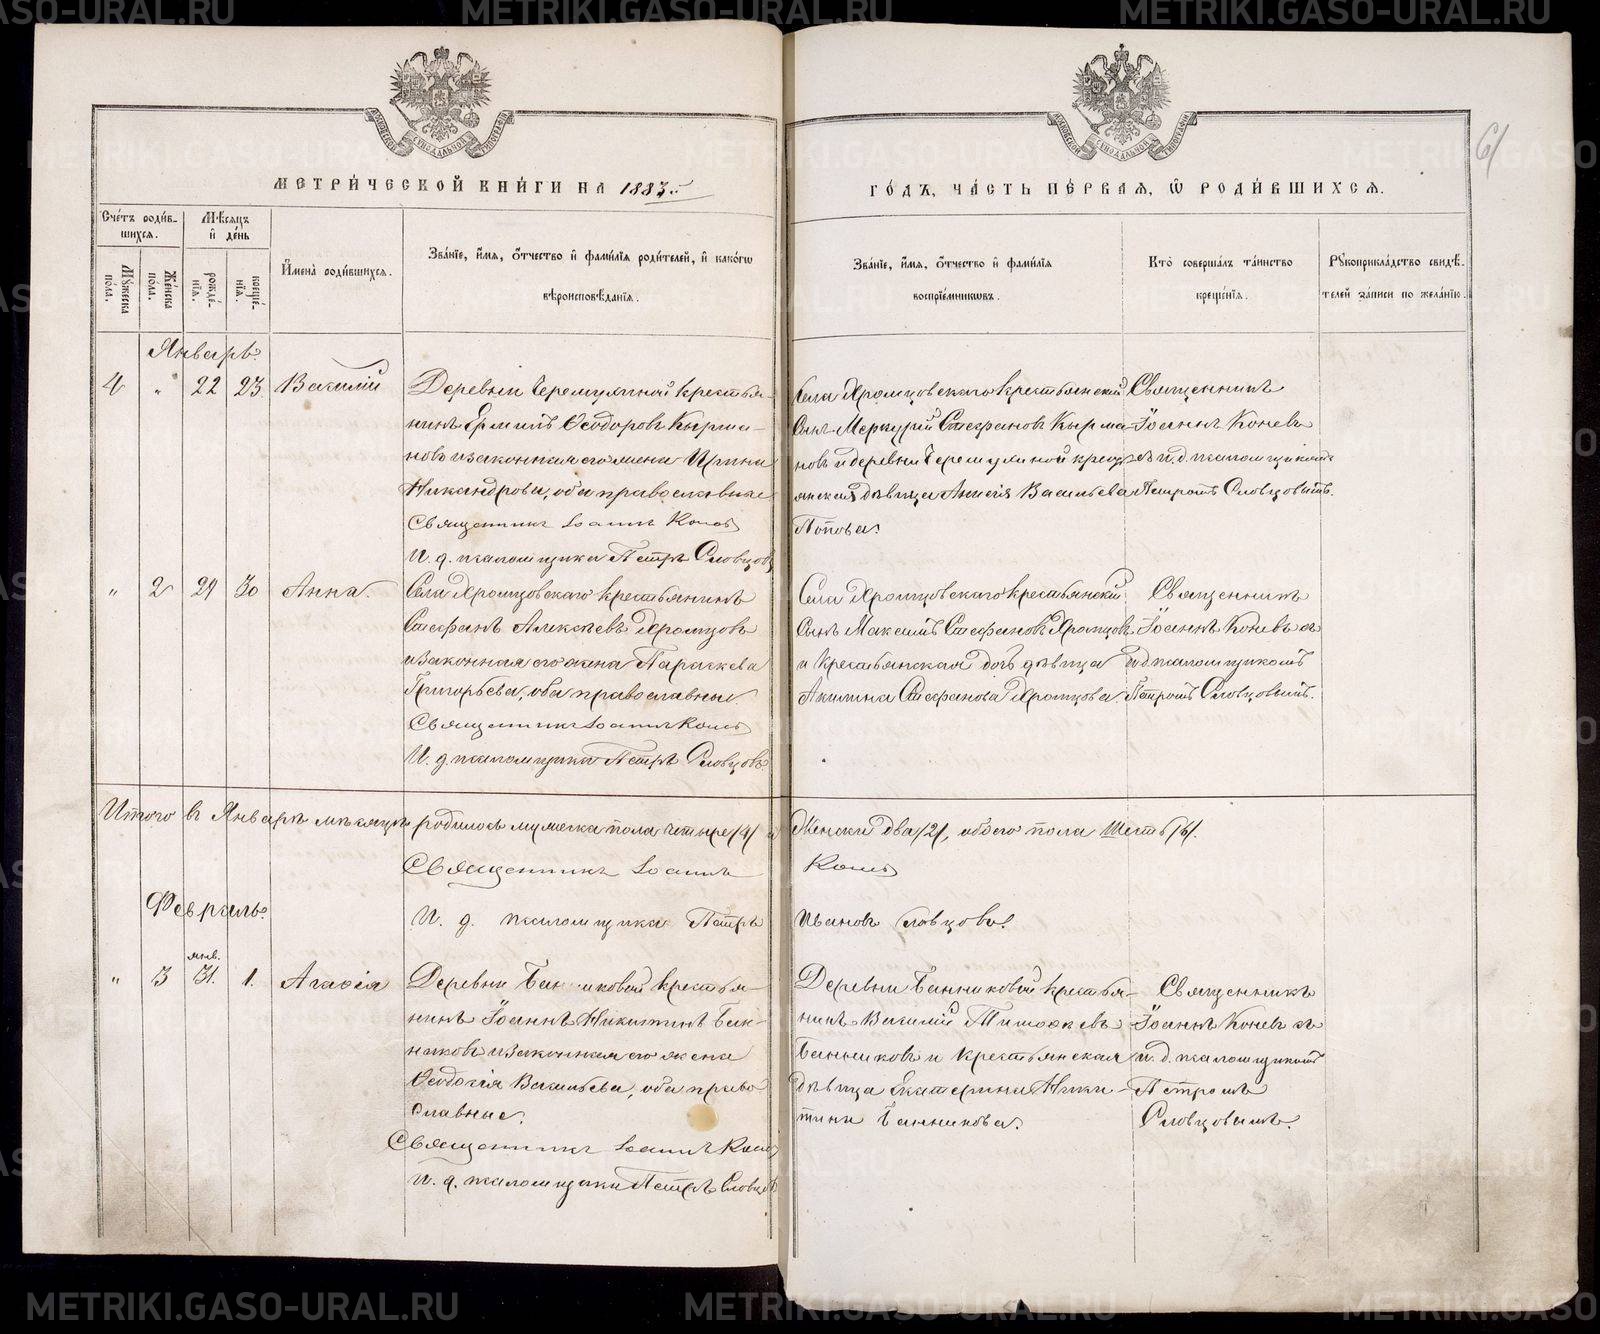 METRIKI.GASO-URAL.RU
МОСКОВСКОЙ СѴНОДАЛЬНОЙ ТИПОГРАФІИ
МОСКОВСКОЙ СѴНОДАЛЬНОЙ ТИПОГРАФІИ
61
МЕТРИ́ЧЕСКОЙ КНИ́ГИ НА 1883.
ГО́ДЪ, ЧА́СТЬ ПЕ́РВАЯ, Ѿ РОДИ́ВШИХСЯ.
Сче́тъ роди́вшихся.
Мꙋжеска по́ла.
Же́нска по́ла.
Мѣ́сяцъ и҆ де́нь
рожде́нїя.
креще́нїя.
И҆мена̀ роди́вшихся.
Зва́нїе, и҆́мя, ѻ҆́тчество и҆ фами́лїя роди́телей, и҆ како́гѡ
вѣроисповѣ́данїя.
Зва́нїе, и҆́мя, ѻ҆́тчество и҆ фами́лїя
воспрїе́мникѡвъ.
Кто̀ соверша́лъ та́инство
креще́нїя.
Рꙋкоприкла́дство свидѣ́телей за́писи по жела́нїю.
Январь.
4 " 22 23 Василій
Деревни Черемухиной крестья-
нинъ Ермилъ Ѳеодоровъ Кырча-
новъ и законная его жена Ирина
Никандрова, оба православные
Священникъ Іоаннъ Коневъ
И. д. псаломщика Петръ Словцовъ
Села Хромцовскаго крестьянскій
сынъ Меркурій Стефановъ
новъ и деревни Черемухиной крест-
янская дѣвица Анисія Васильева
Попова.
Священникъ
Іоаннъ Коневъ
съ и. д. псаломщикомъ
Петромъ Словцовымъ.
" 2 29 30 Анна.
Села Хромцовскаго крестьянинъ
Стефанъ Алексѣевъ Хромцовъ
и законная его жена Параскева
Григорьева, оба православные.
Священникъ Іоаннъ Коневъ
И. д. псаломщика Петръ Словцовъ
Села Хромцовскаго крестьянскій
сынъ Максимъ Стефановъ Хромцовъ
и крестьянская дочь дѣвица
Акилина Стефанова Хромцова.
Священникъ
Іоаннъ Коневъ съ
и д псаломщикомъ
Петромъ Словцовымъ.
Итого въ Январѣ мѣсяцѣ родилось мужеска пола четыре /4/ и Женска два /2/, обоего пола Шесть /6/.
Священникъ Іоаннъ Коневъ
И. д. псаломщика Петръ Ивановъ Словцовъ.
Февраль.
янв.
" 3 31. 1. Агаѳія
Деревни Банниковой крестья-
нинъ Іоаннъ Никитинъ Бан-
никовъ и законная его жена
Ѳеодосія Васильева, оба право-
славные.
Священникъ Іоаннъ Коневъ
И. д. псаломщика Петръ Словцовъ
Деревни Банниковой крестья-
нинъ Василій Тимоѳеевъ
Банниковъ и крестьянская
дѣвица Екатерина Ники-
тина Банникова.
Священникъ
Іоаннъ Коневъ съ
и. д. псаломщикомъ
Петромъ
Словцовымъ.